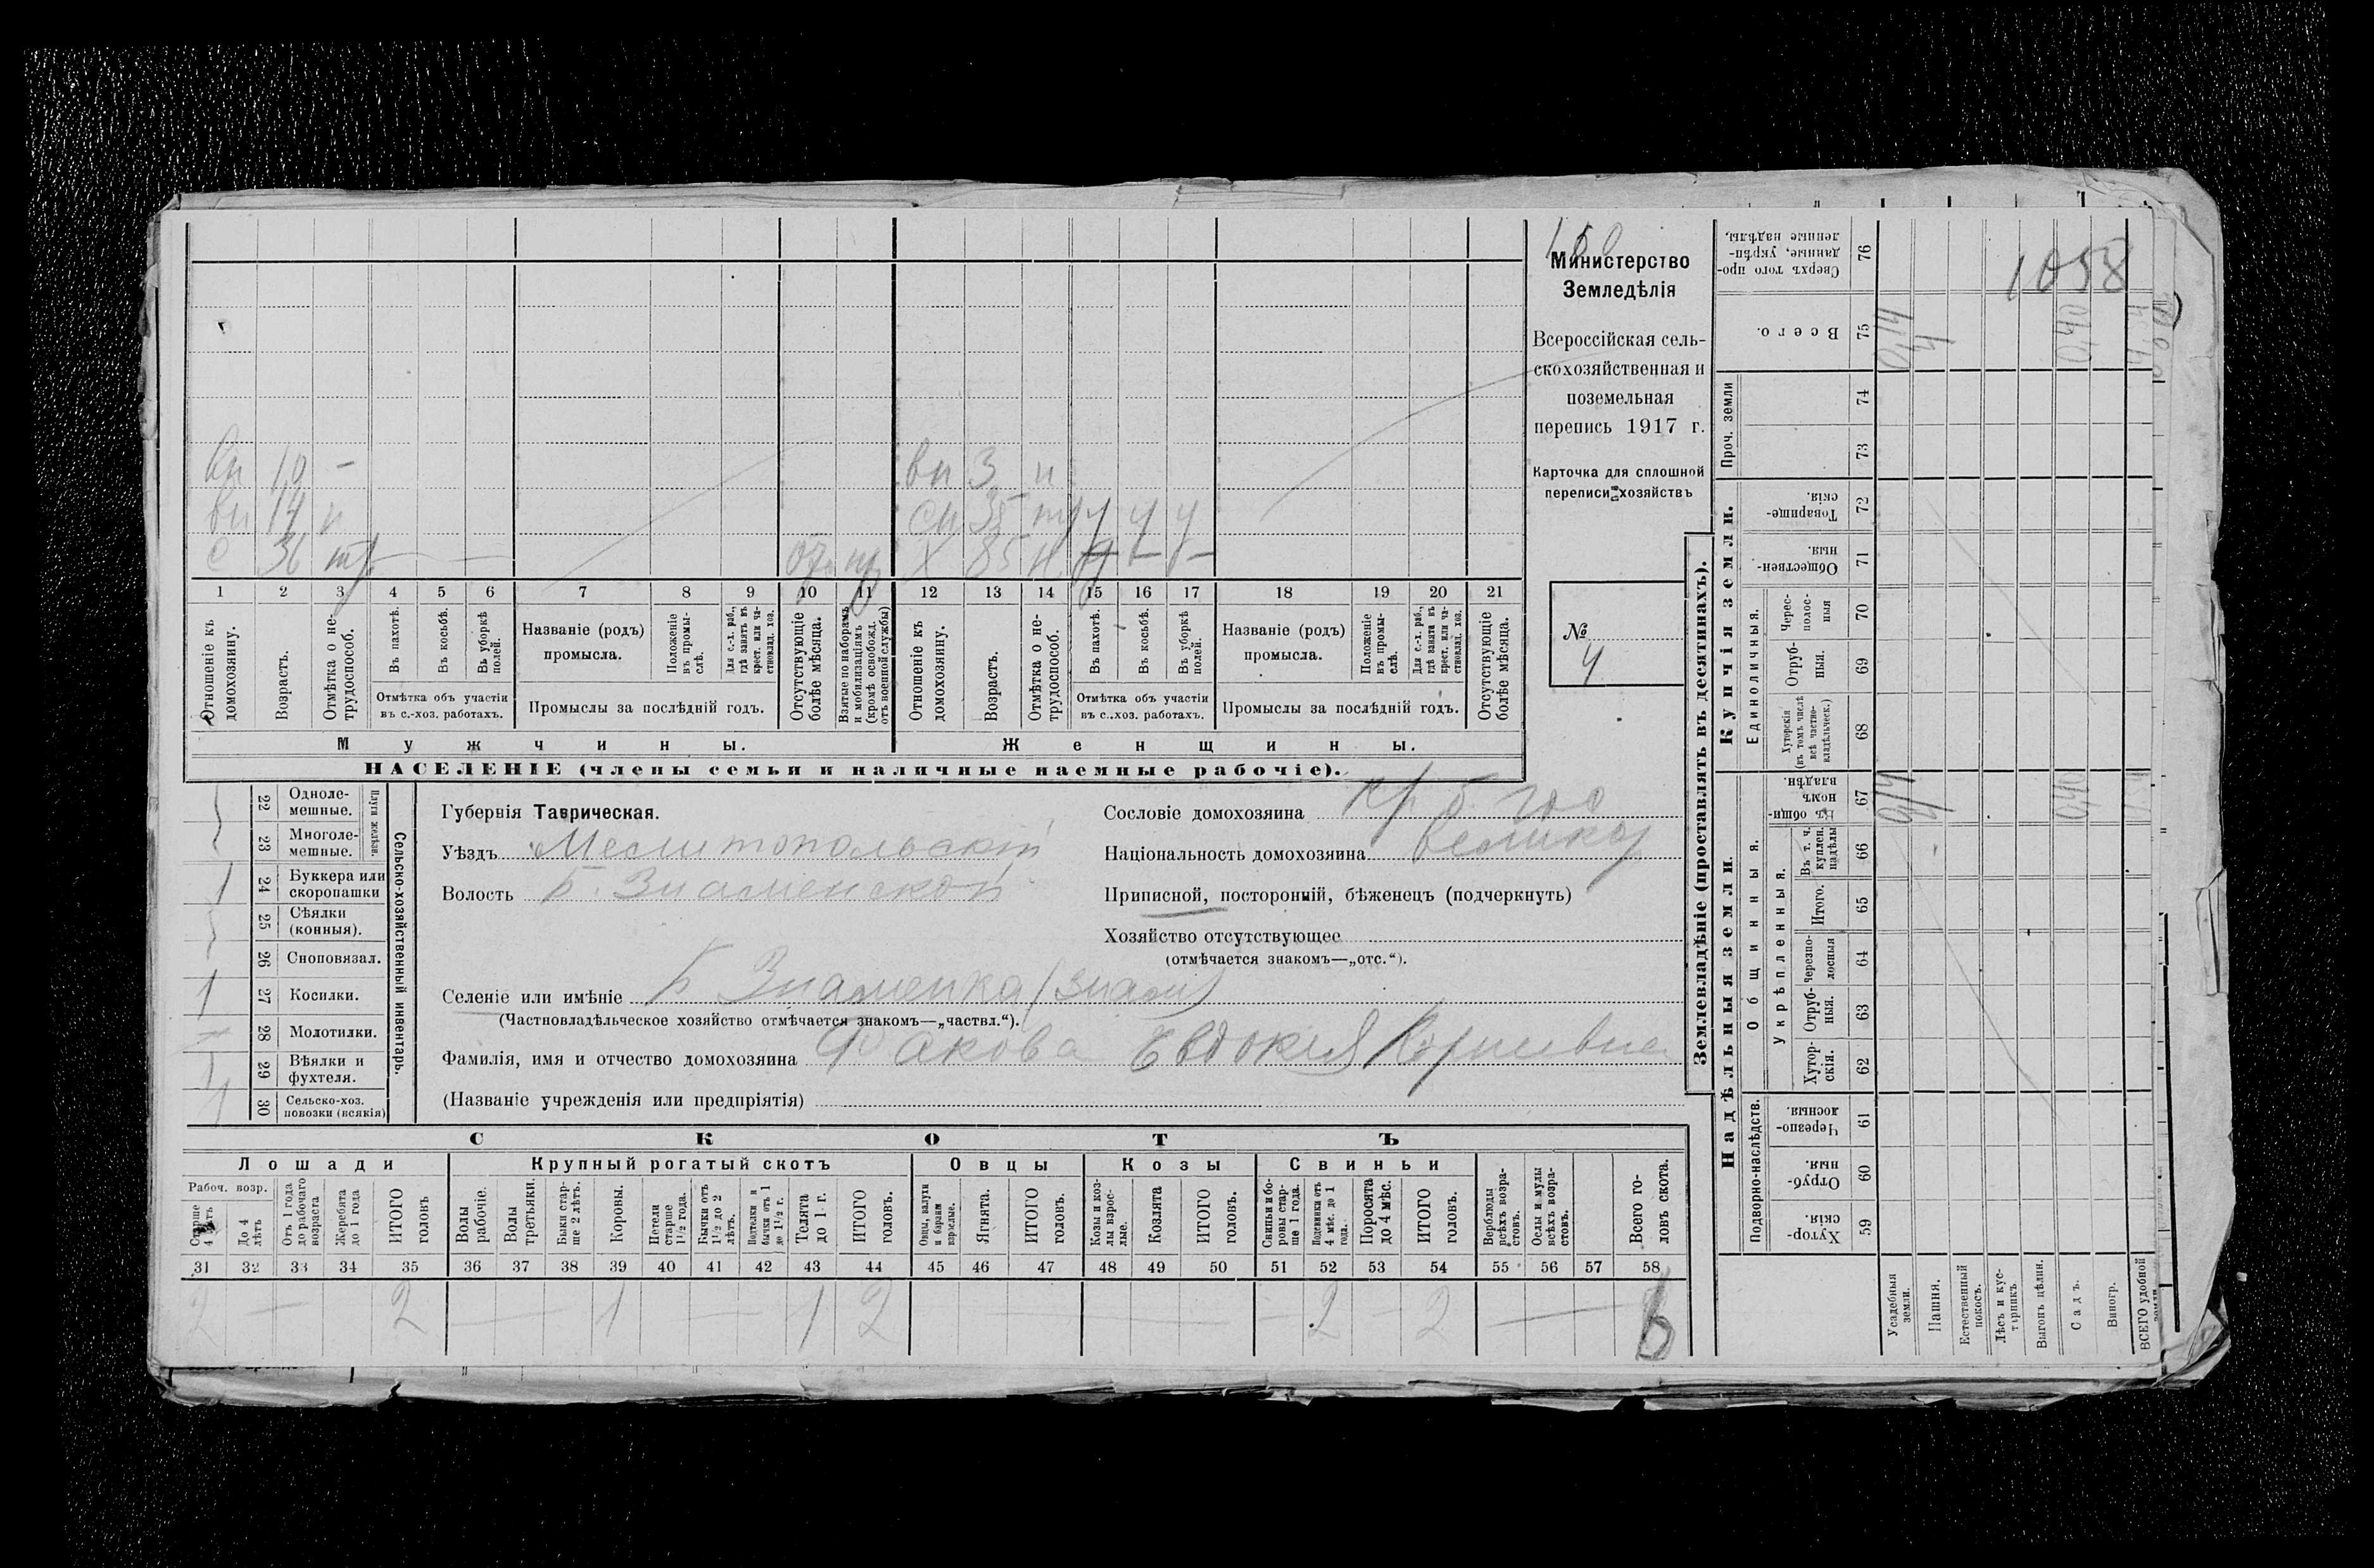 вн 10 – вн 3 н
вн 14 н сн 35 тр у у у
с 36 тр – – Х 85 н – –
1 2 3 4 5 6 7 8 9 10 11 12 13 14 15 16 17 18 19 20 21
Отношеніе къ домохозяину.
Возрастъ.
Отмѣтка о не-трудоспособ.
Въ пахотѣ.
Въ косьбѣ.
Въ уборкѣ полей.
Отмѣтка объ участіи
въ с.-хоз. работахъ.
Названіе (родъ)
промысла.
Положеніе въ промы-слѣ.
Для с.-х. раб., гдѣ занятъ въ крест. или ча-стновлад. хоз.
Промыслы за послѣдній годъ.
Отсутствующіе болѣе мѣсяца.
Взятые по наборамъ и мобилизаціямъ (кромѣ освобожд. отъ военной службы)
Отношеніе къ домохозяину.
Возрастъ.
Отмѣтка о не-трудоспособ.
Въ пахотѣ.
Въ косьбѣ.
Въ уборкѣ полей.
Отмѣтка объ участіи
въ с.-хоз. работахъ.
Названіе (родъ)
промысла.
Положеніе въ промы-слѣ.
Для с.-х. раб., гдѣ занята въ крест. или ча-стновлад. хоз.
Промыслы за послѣдній годъ.
Отсутствующіе болѣе мѣсяца.
Мужчины. Женщины.
НАСЕЛЕНІЕ (члены семьи и наличные наемные рабочіе).
Министерство
Земледѣлія
Всероссійская сель-
скохозяйственная и
поземельная
перепись 1917 г.
Карточка для сплошной
переписи хозяйствъ
№
4
22 Одноле-мешные.
23 Многоле-мешные.
Плуги желѣзн.
1 24 Буккера или скоропашки
25 Сѣялки (конныя).
26 Сноповязал.
1 27 Косилки.
28 Молотилки.
29 Вѣялки и фухтеля.
1 30 Сельско-хоз. повозки (всякія)
Сельско-хозяйственный инвентарь.
Губернія Таврическая.
Уѣздъ Мелитопольскій
Волость Б. Знаменской
Селеніе или имѣніе Б Знаменка (Знам)
(Частновладѣльческое хозяйство отмѣчается знакомъ—„частвл.“).
Фамилія, имя и отчество домохозяина Факова Евдокия
(Названіе учрежденія или предпріятія)
Сословіе домохозяина кр. б. гос
Національность домохозяина великор
Приписной, посторонній, бѣженецъ (подчеркнуть)
Хозяйство отсутствующее
(отмѣчается знакомъ—„отс.“).
СКОТЪ
Лошади Крупный рогатый скотъ Овцы Козы Свиньи
Рабоч. возр.
Старше 4 лѣтъ
До 4 лѣтъ
Отъ 1 года до рабочаго возраста
Жеребята до 1 года
ИТОГО головъ
Волы рабочіе.
Волы третьяки.
Быки стар-ше 2 лѣтъ.
Коровы.
Нетели старше 1½ года.
Бычки отъ 1½ до 2 лѣтъ.
Нетелки и бычки отъ 1 до 1½ г.
Телята до 1 г.
ИТОГО головъ.
Овцы, валухи и бараны взрослые.
Ягнята.
ИТОГО головъ.
Козы и коз-лы взрос-лые.
Козлята
ИТОГО головъ.
Свиньи и бо-ровы стар-ше 1 года.
Подсвинки отъ 4 мѣс. до 1 года.
Поросята до 4 мѣс.
ИТОГО головъ.
Верблюды всѣхъ возра-стовъ.
Ослы и мулы всѣхъ возра-стовъ.
Всего го-ловъ скота.
31 32 33 34 35 36 37 38 39 40 41 42 43 44 45 46 47 48 49 50 51 52 53 54 55 56 57 58
2 – 2 – 1 – 1 2 – – 2 – 2 – 6
Землевладѣніе (проставлять въ десятинахъ).
Надѣльныя земли. Купчія земли. Проч. земли
Подворно-наслѣдств. Общинныя. Единоличныя.
Укрѣпленныя.
Хутор-скія. 59
Отруб-ныя. 60
Черезпо-лосныя. 61
Хутор-скія. 62
Отруб-ныя. 63
Черезпо-лосныя 64
Итого. 65
Въ т. ч. куплен. надѣлы 66
Въ общин-номъ владѣн. 67
Хуторскія (въ томъ числѣ всѣ частно-владѣльческ.) 68
Отруб-ныя. 69
Черес-полос-ныя 70
Обществен-ныя. 71
Товарище-скія. 72
73
74
Всего. 75
Сверхъ того про-данные, укрѣп-ленные надѣлы. 76
1058
Усадебныя земли. 0,14 0,14
Пашня. 4 4
Естественный покосъ.
Лѣсъ и кус-тарникъ.
Выгонъ цѣлин.
Садъ. 0,40 0,40
Виногр.
ВСЕГО удобной земли